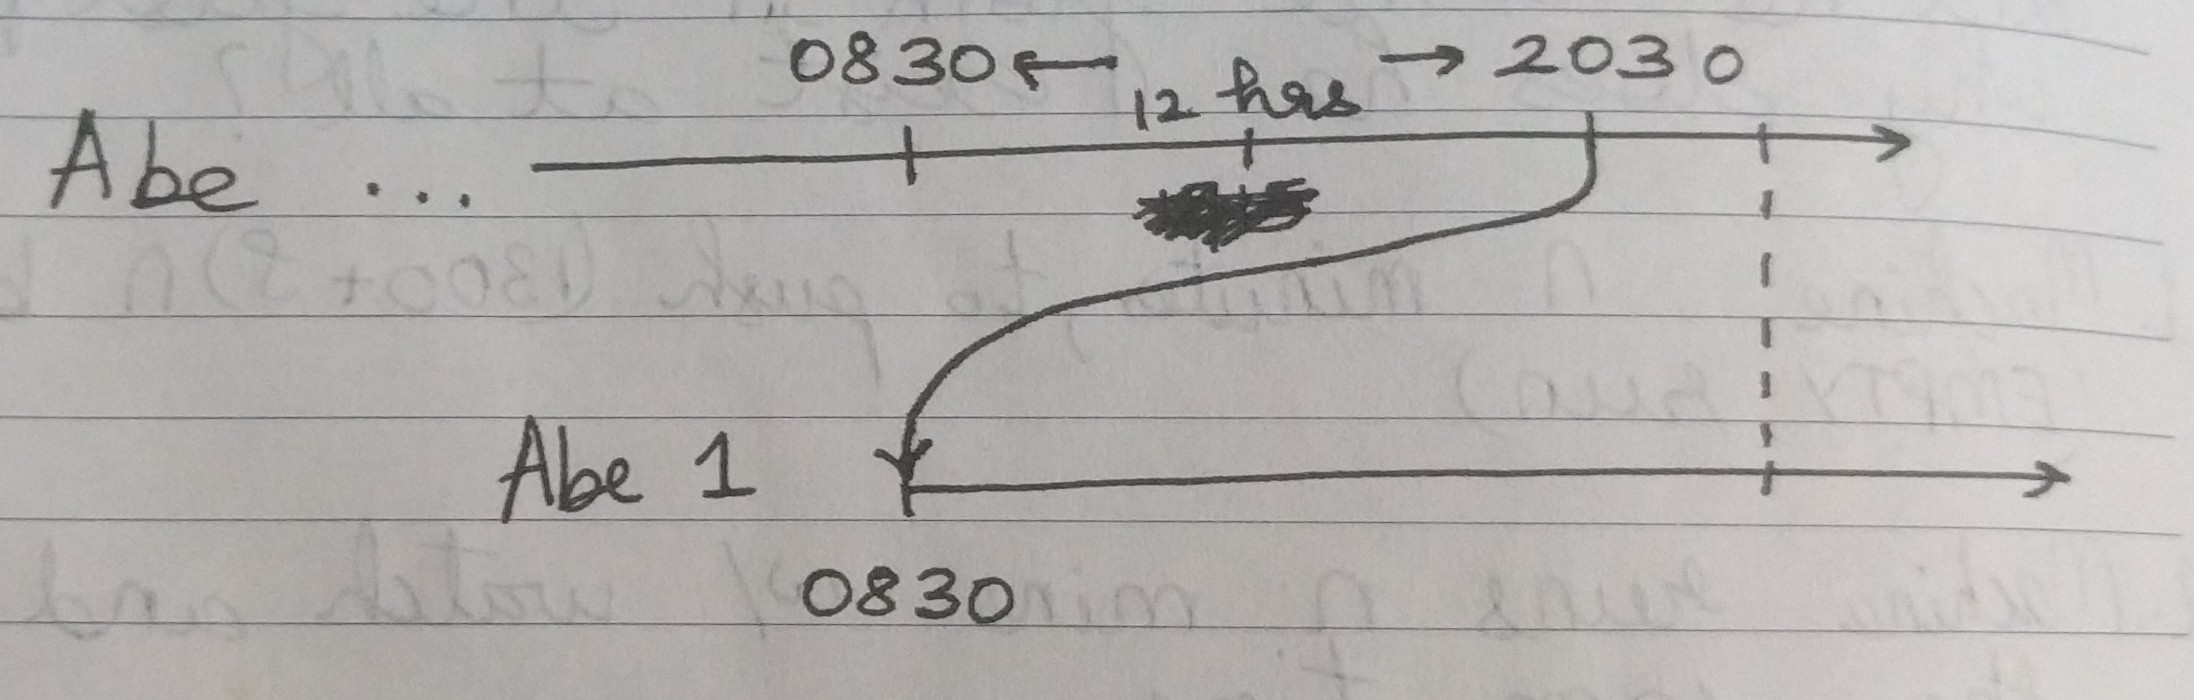 0830 ← 12 hrs → 2030
Abe ...
Abe 1
0830